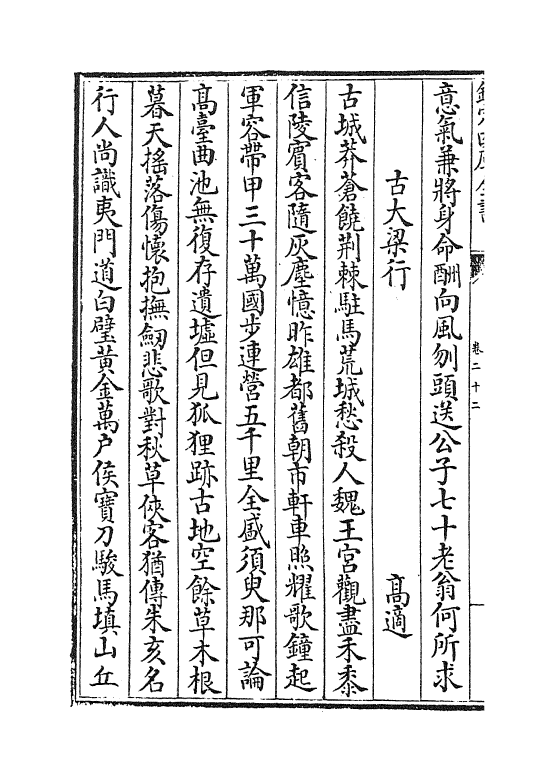 意氣兼將身命酬向風刎頭送公子七十老翁何所求
古大梁行 髙適
古城莽蒼饒荆棘駐馬荒城愁殺人魏王宮觀盡禾黍
信陵賓客隨灰塵憶昨雄都舊朝市軒車照耀歌鐘起
軍容帶甲三十萬國步連營五千里全盛須臾那可論
髙臺曲池無復存遺墟但見狐狸跡古地空餘草木根
暮天摇落傷懷抱撫劒悲歌對秋草俠客猶傳朱亥名
行人尚識夷門道白璧黄金萬户侯寶刀駿馬填山丘
卷二十二